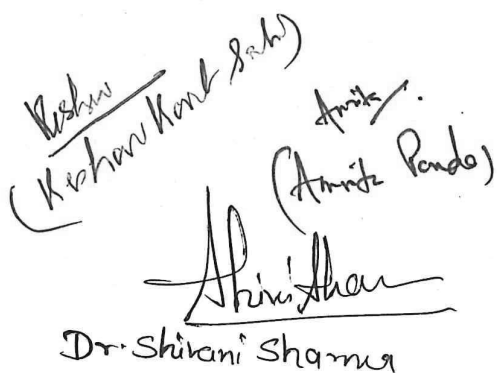 Keshav
(Keshav Kant Sahu)
Amrita
(Amrita Pande)
Dr. Shivani Sharma